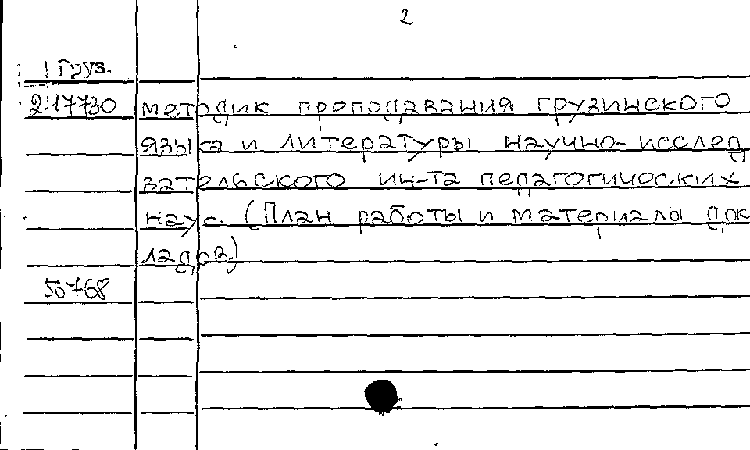 2
1 Груз.
2:17730 методик преподавания грузинского
языка и литературы научно-исслед
вательского ин-та педагогических
наук. (План работы и материалы док
ладов)
50768